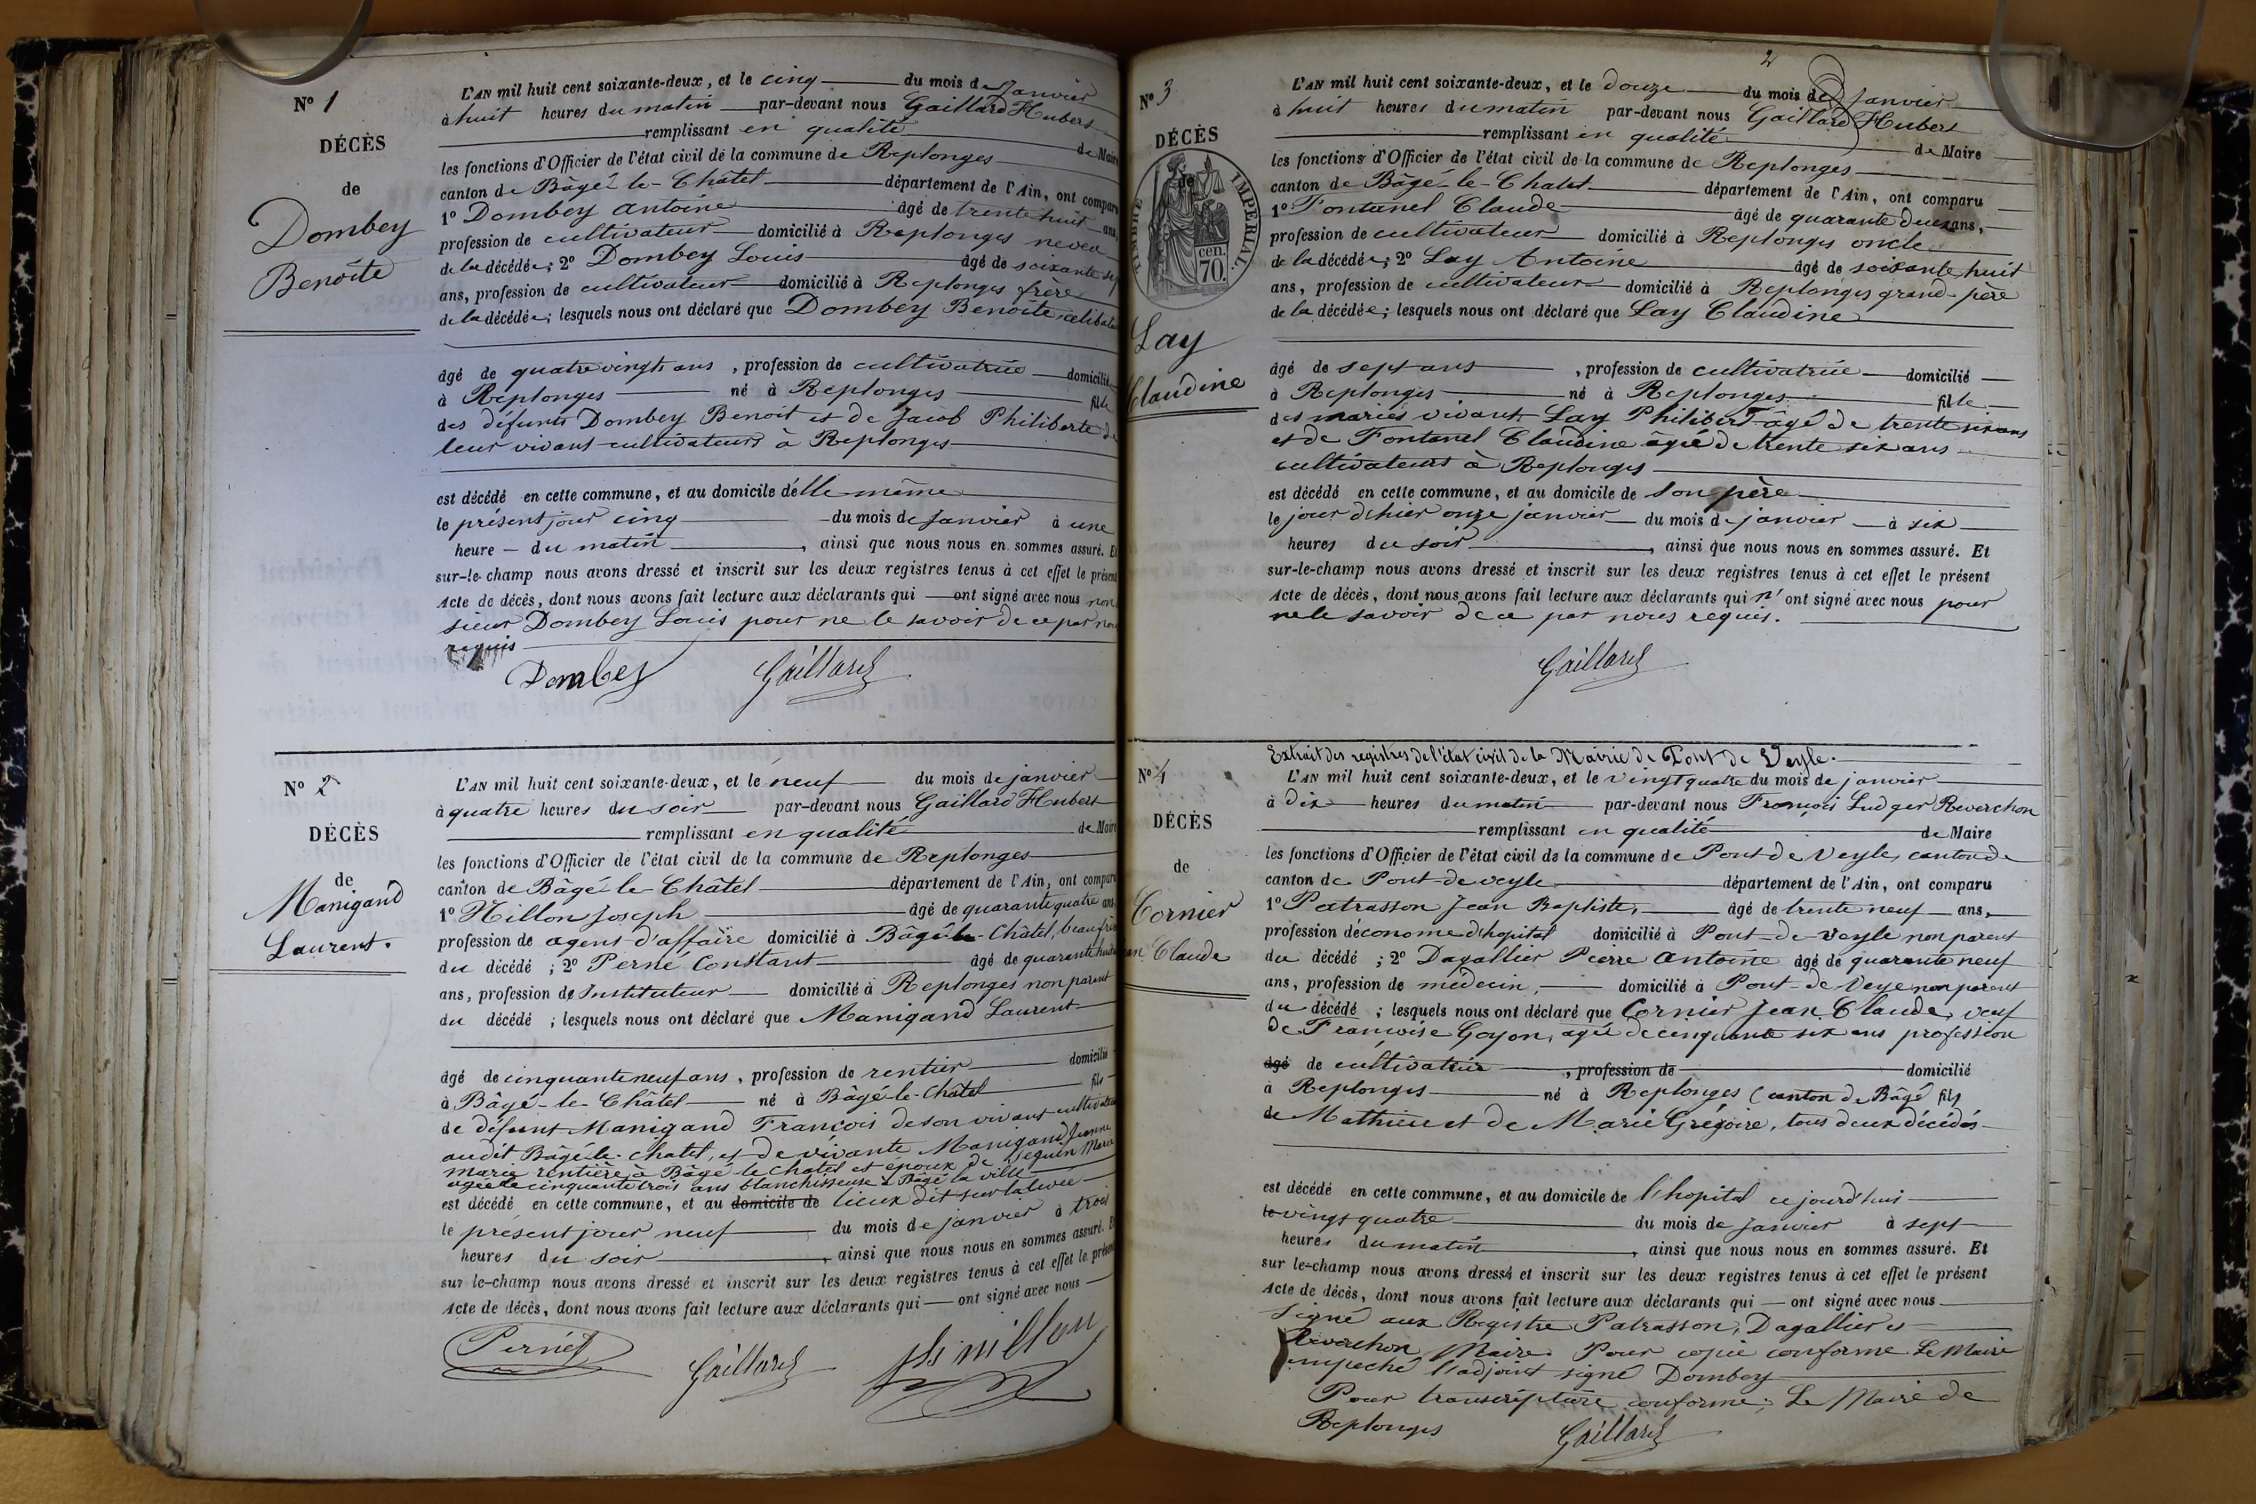 N° 1
DÉCÈS
de
Dombey
Benoîte
L'AN mil huit cent soixante-deux, et le cinq du mois de Janvier
à huit heures du matin par-devant nous Gaillard Hubert
remplissant en qualité de Maire
les fonctions d'Officier de l'état civil de la commune de Replonges
canton de Bâgé-le-Châtel département de l'Ain, ont comparu
1° Dombey Antoine âgé de trente huit ans,
profession de cultivateur domicilié à Replonges neveu
de la décédée; 2° Dombey Louis âgé de soixante sept
ans, profession de cultivateur domicilié à Replonges frère
de la décédée; lesquels nous ont déclaré que Dombey Benoîte célibataire
âgé de quatre vingts ans, profession de cultivatrice domicilié
à Replonges né à Replonges fille
des défunts Dombey Benoit et de Jacob Philiberte de
leur vivant cultivateurs à Replonges
est décédé en cette commune, et au domicile d'elle même
le présent jour cinq du mois de Janvier à une
heure du matin, ainsi que nous nous en sommes assuré. Et
sur-le-champ nous avons dressé et inscrit sur les deux registres tenus à cet effet le présent
Acte de décès, dont nous avons fait lecture aux déclarants qui ont signé avec nous non
sieur Dombey Louis pour ne le savoir de ce par nous
requis
Dombey Gaillard
N° 2
DÉCÈS
de
Manigand
Laurent.
L'AN mil huit cent soixante-deux, et le neuf du mois de janvier
à quatre heures du soir par-devant nous Gaillard Hubert
remplissant en qualité de Maire
les fonctions d'Officier de l'état civil de la commune de Replonges
canton de Bâgé-le-Châtel département de l'Ain, ont comparu
1° Nillon Joseph âgé de quarante quatre ans,
profession de agent d'affaire domicilié à Bâgé-le-Châtel, beau frère
du décédé; 2° Perné Constant âgé de quarante huit
ans, profession de Instituteur domicilié à Replonges non parent
du décédé; lesquels nous ont déclaré que Manigand Laurent
âgé de cinquante neuf ans, profession de rentier domicilié
à Bâgé-le-Châtel né à Bâgé-le-Châtel fils
de défunt Manigand François de son vivant cultivateur
audit Bâgé-le-Chatel, et de vivante Manigand Jeanne
Marie rentière à Bâgé-le-Chatel et époux de Seguin Marie
agée de cinquante trois ans blanchisseuse à Bâgé la ville
est décédé en cette commune, et au domicile de lieux dit sur la levée
le présent jour neuf du mois de janvier à trois
heures du soir, ainsi que nous nous en sommes assuré. Et
sur-le-champ nous avons dressé et inscrit sur les deux registres tenus à cet effet le présent
Acte de décès, dont nous avons fait lecture aux déclarants qui ont signé avec nous
Pernet Gaillard Jh nillon
2
N° 3
DÉCÈS
de
TIMBRE IMPERIAL.
cen.
70.
Lay
Claudine
L'AN mil huit cent soixante-deux, et le douze du mois de Janvier
à huit heures du matin par-devant nous Gaillard Hubert
remplissant en qualité de Maire
les fonctions d'Officier de l'état civil de la commune de Replonges
canton de Bâgé-le-Chatel département de l'Ain, ont comparu
1° Fontanel Claude âgé de quarante deux ans,
profession de cultivateur domicilié à Replonges oncle
de la décédée; 2° Lay Antoine âgé de soixante huit
ans, profession de cultivateur domicilié à Replonges grand-père
de la décédée; lesquels nous ont déclaré que Lay Claudine
âgé de sept ans, profession de cultivatrice domicilié
à Replonges né à Replonges fille
des mariés vivant Lay Philibert âgé de trente six ans
et de Fontanel Claudine âgée de trente six ans
cultivateurs à Replonges
est décédé en cette commune, et au domicile de son père
le jour d'hier onze janvier du mois de janvier à six
heures du soir, ainsi que nous nous en sommes assuré. Et
sur-le-champ nous avons dressé et inscrit sur les deux registres tenus à cet effet le présent
Acte de décès, dont nous avons fait lecture aux déclarants qui n'ont signé avec nous pour
ne le savoir de ce par nous requis.
Gaillard
N° 4
DÉCÈS
de
Cornier
Jean Claude
Extrait des registres de l'état civil de la Mairie de Pont de Veyle.
L'AN mil huit cent soixante-deux, et le vingt quatre du mois de janvier
à dix heures du matin par-devant nous François Ludger Reverchon
remplissant en qualité de Maire
les fonctions d'Officier de l'état civil de la commune de Pont-de-Veyle, canton de
canton de Pont-de-veyle département de l'Ain, ont comparu
1° Patrasson Jean Baptiste, âgé de trente neuf ans,
profession d'économe d'hopital domicilié à Pont-de-veyle non parent
du décédé; 2° Dagallier Pierre Antoine âgé de quarante neuf
ans, profession de médecin, domicilié à Pont-de-Veye non parent
du décédé; lesquels nous ont déclaré que Cornier Jean Claude, veuf
de Françoise Goyon, agée de cinquante six ans profession
âgé de cultivatrice, profession de domicilié
à Replonges né à Replonges (canton de Bâgé fils
de Mathieu et de Marie Grégoire, tous deux décédés
est décédé en cette commune, et au domicile de l'hopital ce jourd'hui
le vingt quatre du mois de janvier à sept
heures du matin, ainsi que nous nous en sommes assuré. Et
sur le-champ nous avons dressé et inscrit sur les deux registres tenus à cet effet le présent
Acte de décès, dont nous avons fait lecture aux déclarants qui ont signé avec nous
Signé aux Registre Patrasson, Dagallier et
Reverchon Maire. Pour copie conforme Le Maire
empeché l'adjoint signé Dombey
Pour transcripture conforme: Le Maire de
Replonges Gaillard